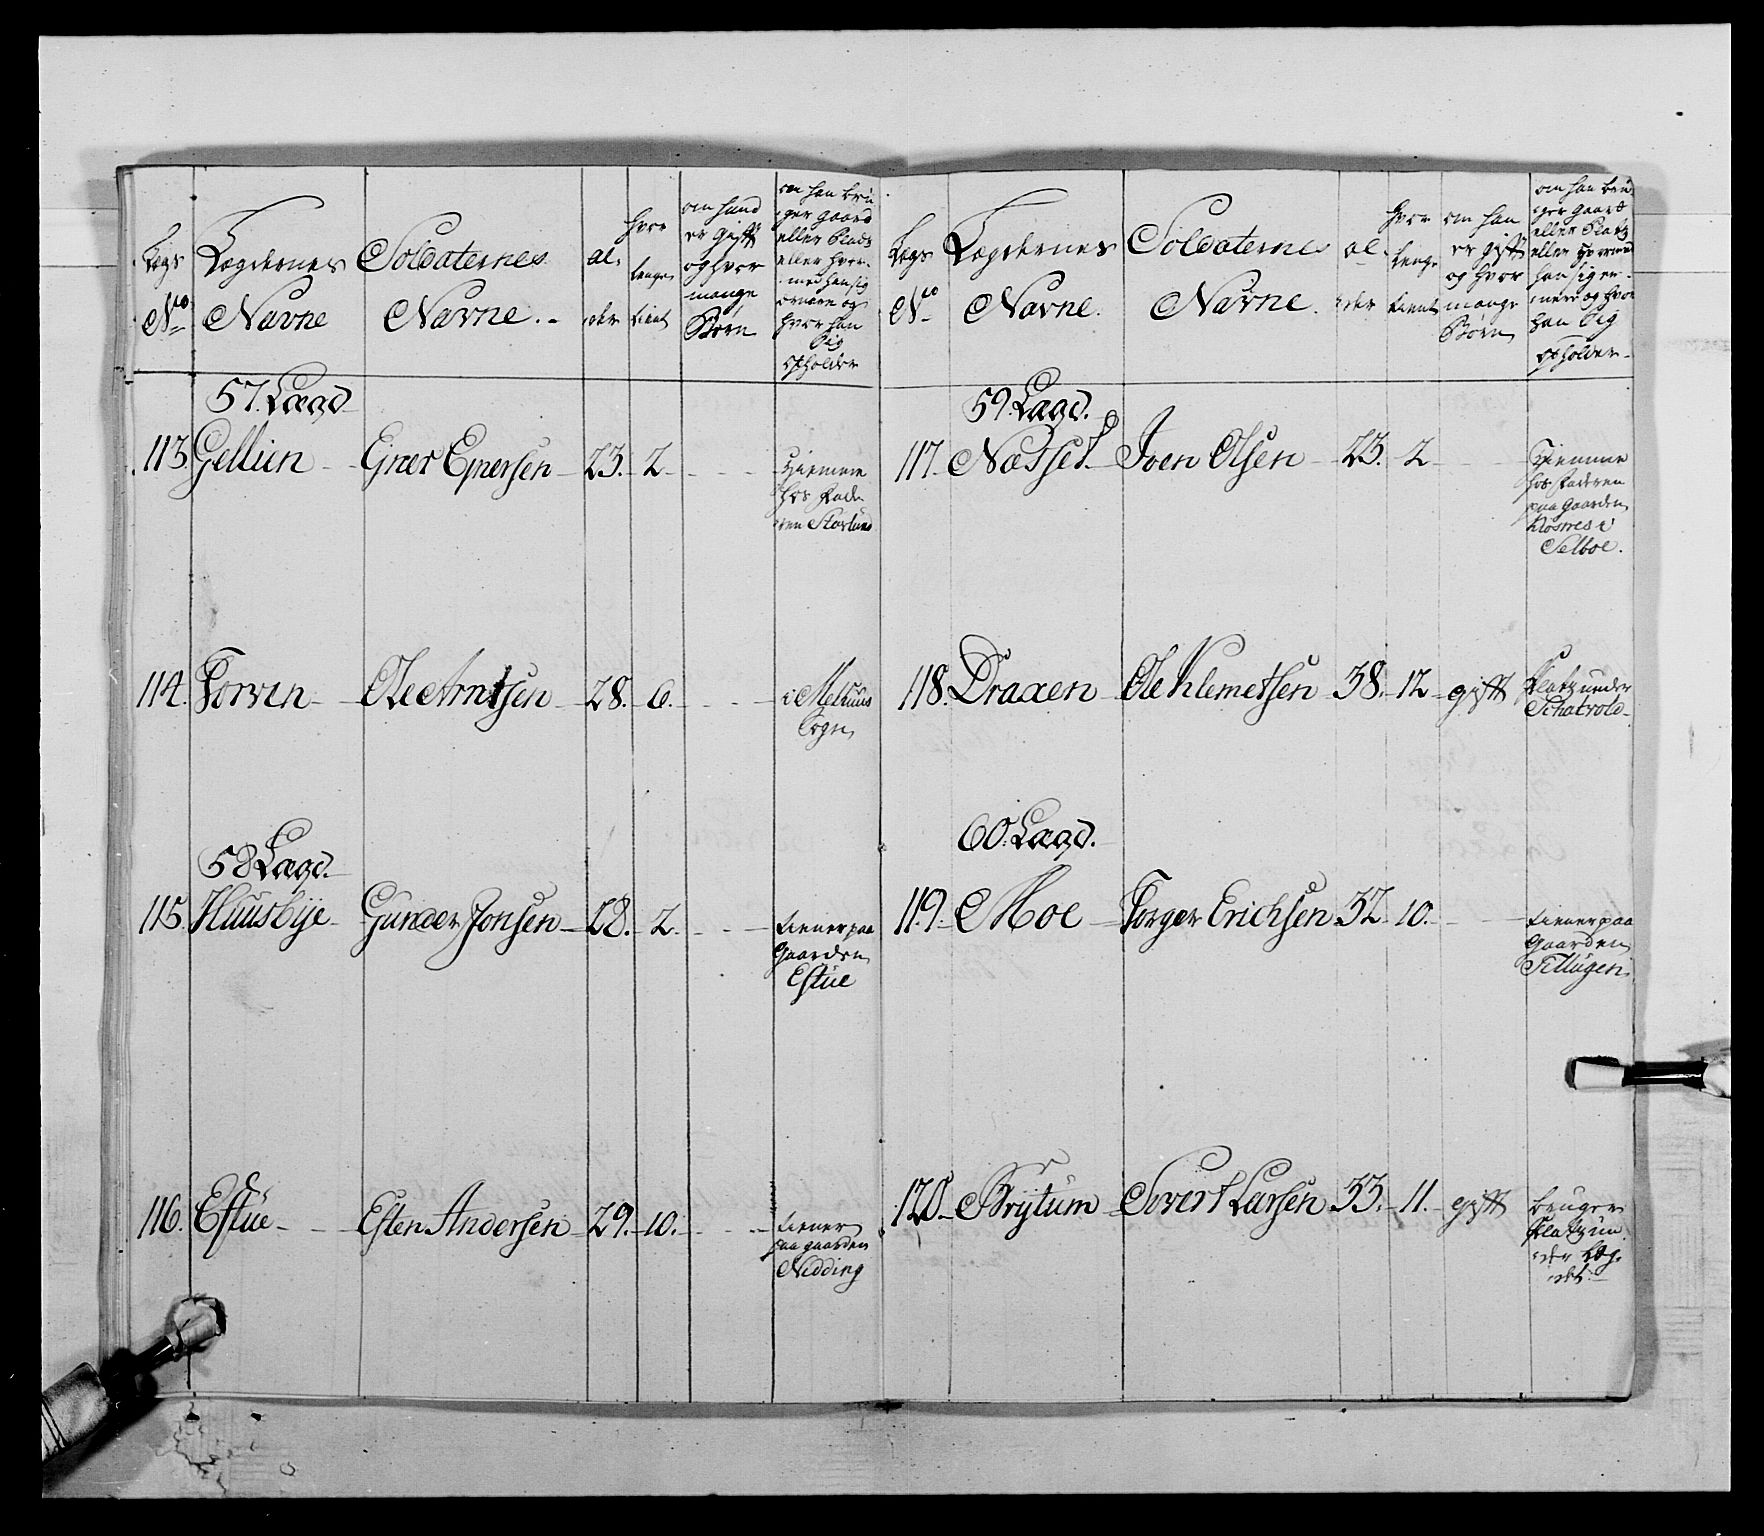 Lægs
No
Lægdernes
Navne
Soldaternes
Navne.
al-
der
hvor
lenge
tient
om hand
er gift
og hvor
mange
Børn
om han bru
ger gaard
eller Plads
eller hvor
med han sig
ernære og
hvor han
sig
opholder
57. Lægd
113. Gellien Einer Einersen 23. 2
Hiemme
hos Fade
ren Storlund
114. Torven Ole Arntsen 28. 6.
i Melhuus
Sogn
58 Lægd.
115. Huusbye Gunder Jonsen 28. 2.
tiener paa
Gaarden
Estue
116. Estue Esten Andersen 29. 10.
tiener
paa gaarden
Nidding
Lægs
No
Lægdernes
Navne.
Soldaternes
Navne.
al-
der
hvor
lenge
tient
om han
er gift
og hvor
mange
Børn
om han bru
ger gaard
eller Platz
eller hvormed
han sig er-
nære og hvor
han sig
opholder
59. Lægd.
117. Næsset Iven Olsen 23. 2
Hiemme
hos Faderen
paa Gaarden
i
Selboe.
118. Draxen Ole Klemetsen 38. 12 gift
Platz under
60. Lægd.
119. Moe Torger Erichsen 32 10.
tiener paa
Gaarden
Tellugen
120. Brytum Sivert Larsen 33. 11. gift
bruger
Platz un
der Læg
det